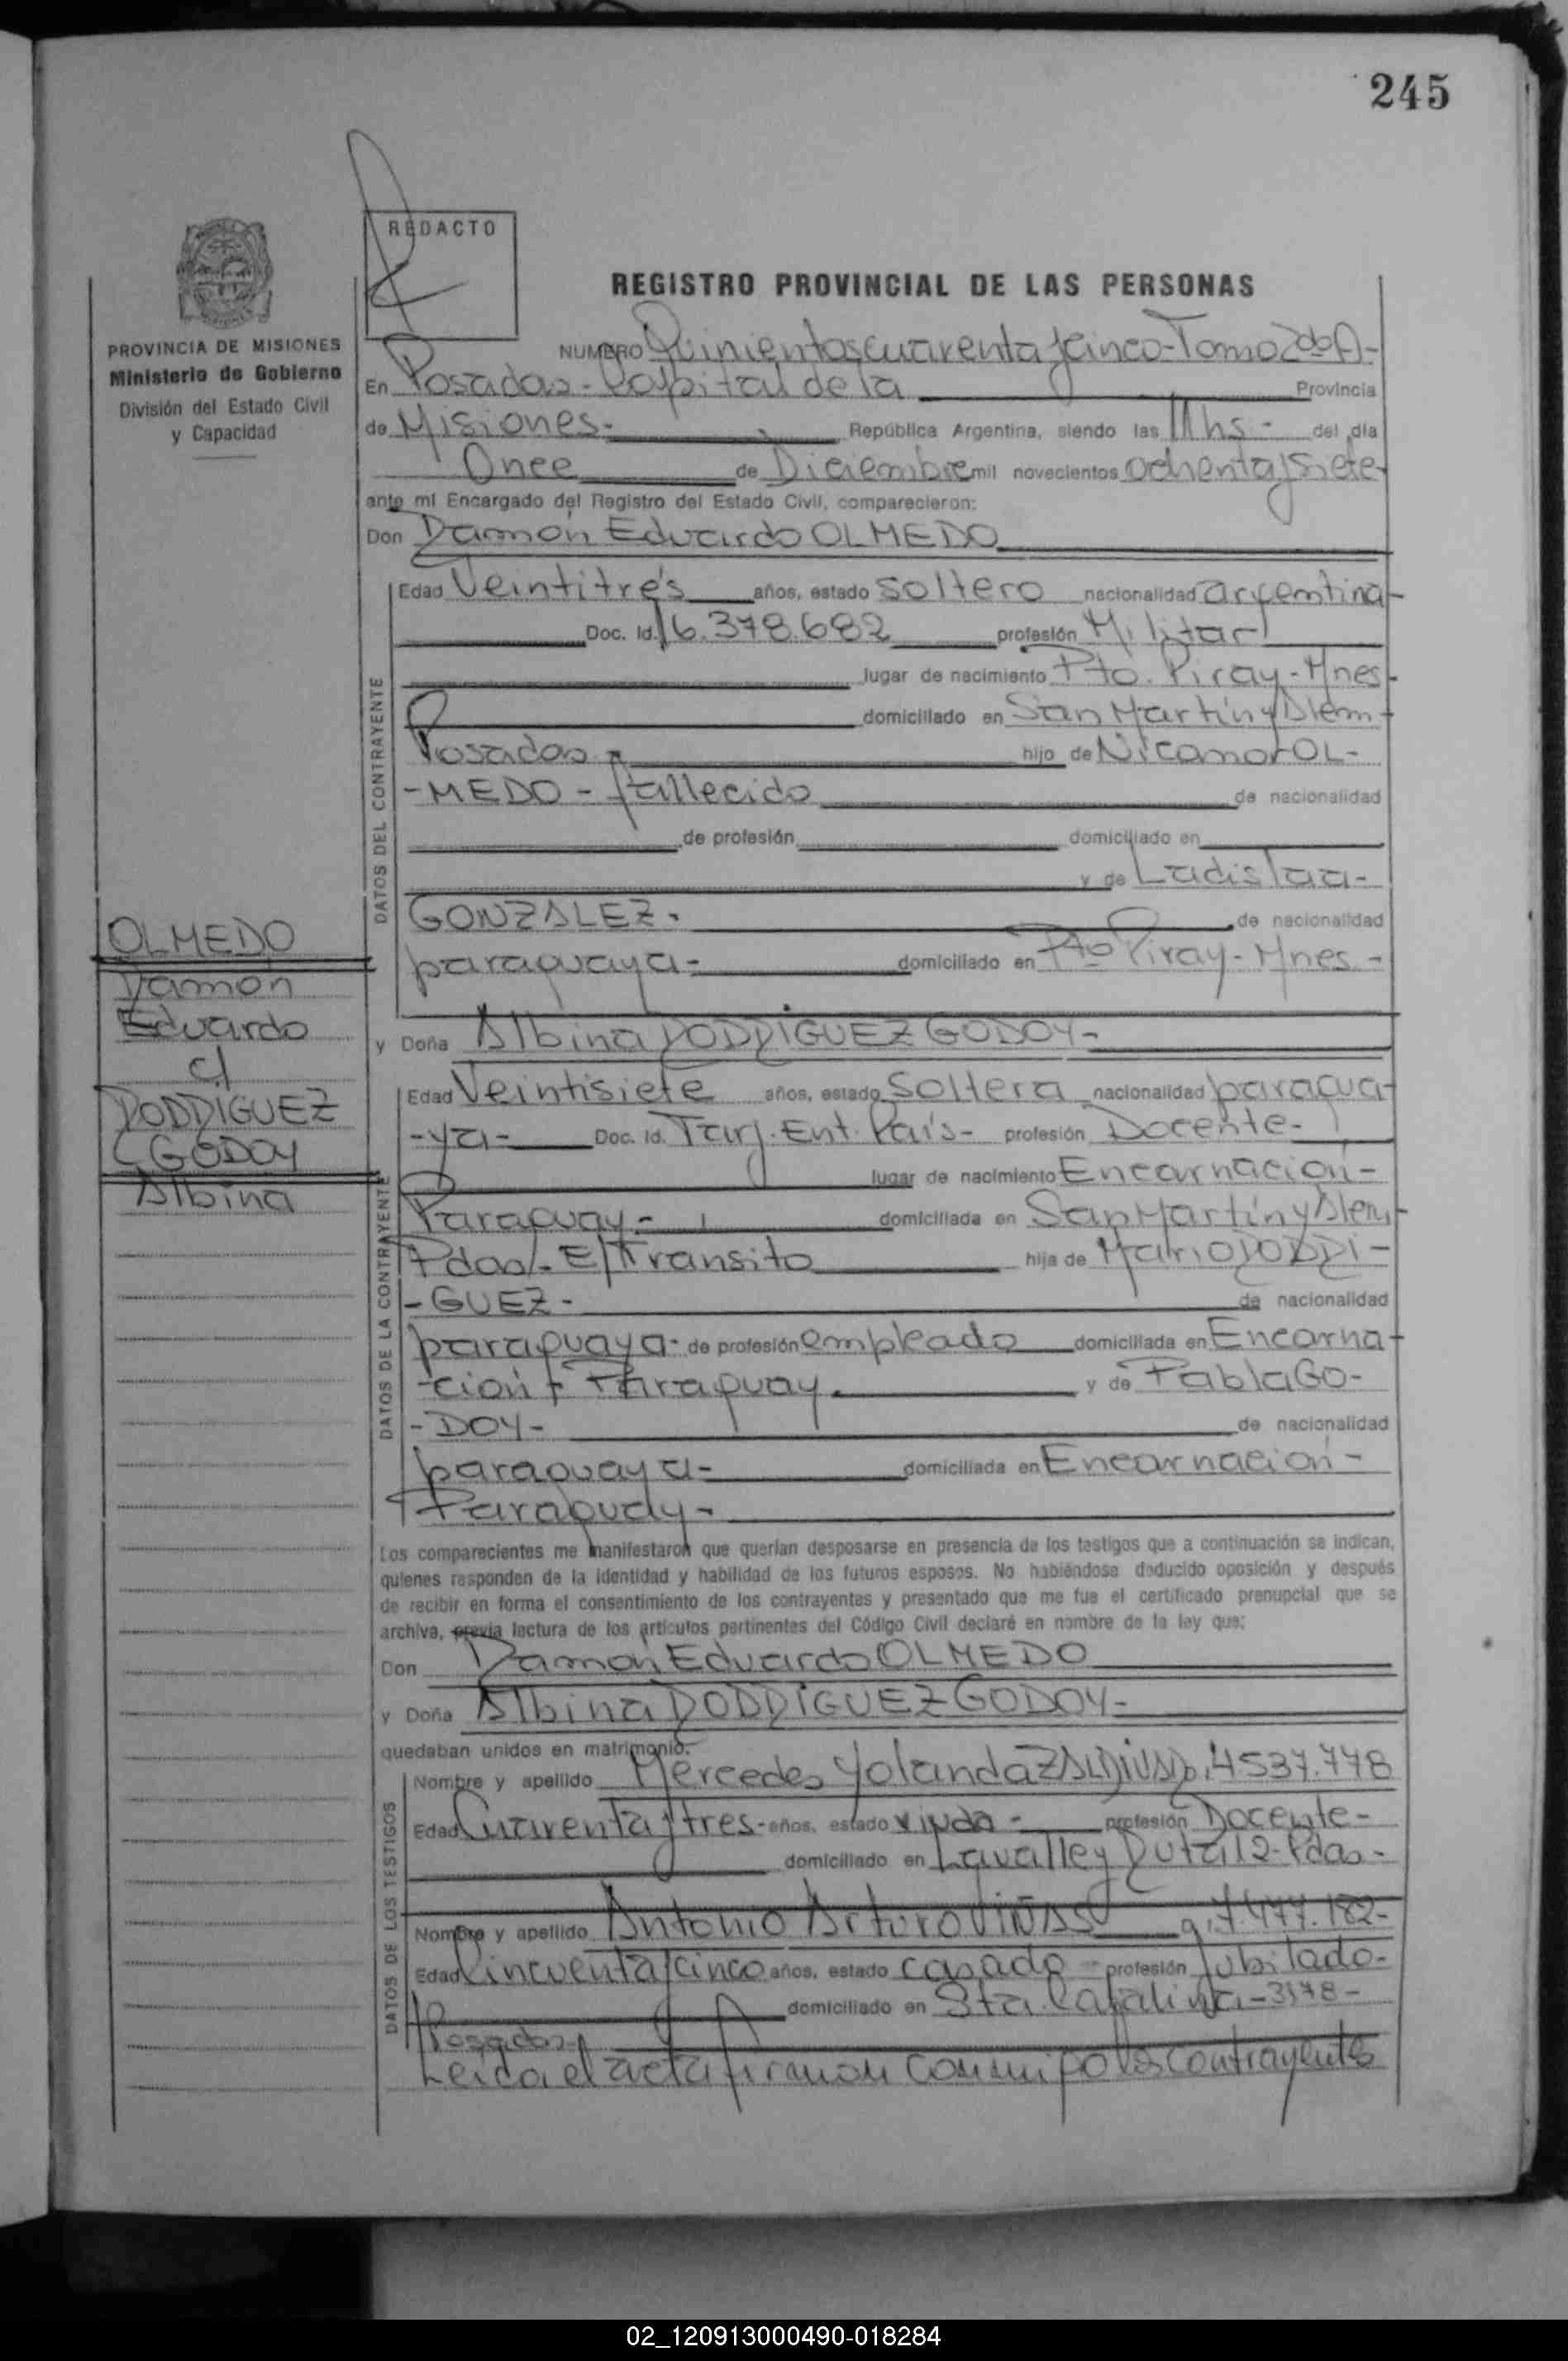 245
REDACTO
REGISTRO PROVINCIAL DE LAS PERSONAS
PROVINCIA DE MISIONES
Ministerio de Gobierno
División del Estado Civil
y Capacidad
NUMERO Quinientos cuarenta y cinco - Tomo 2do A-
En Posadas - Capital de la Provincia
de Misiones - República Argentina, siendo las 11 hs - del día
Once de Diciembre mil novecientos ochenta y siete
ante mí Encargado del Registro del Estado Civil, comparecieron:
Don Ramón Eduardo OLMEDO
DATOS DEL CONTRAYENTE
Edad Veintitrés años, estado soltero nacionalidad argentina-
Doc. Id. 16.378.682 profesión Militar
lugar de nacimiento Pto. Piray - Mnes-
domiciliado en San Martín y Alem-
Posadas - hijo de Nicamor OL-
-MEDO - fallecido de nacionalidad
de profesión domiciliado en
y de Ladislaa-
GONZALEZ - de nacionalidad
paraguaya - domiciliado en Pto Piray - Mnes -
OLMEDO
Ramón
Eduardo
c/
RODRIGUEZ
GODOY
Albina
y Doña Albina RODRIGUEZ GODOY-
DATOS DE LA CONTRAYENTE
Edad Veintisiete años, estado Soltera nacionalidad paragua-
-ya- Doc. Id. Tarj. Ent. País- profesión Docente-
lugar de nacimiento Encarnación-
Paraguay - domiciliada en San Martín y Alem-
Pdas - E/Transito hija de Mario RODRI-
-GUEZ- de nacionalidad
paraguaya- de profesión empleado domiciliada en Encarna-
-ción - Paraguay. y de Pabla GO-
-DOY- de nacionalidad
paraguaya- domiciliada en Encarnación-
Paraguay-
Los comparecientes me manifestaron que querían desposarse en presencia de los testigos que a continuación se indican,
quienes responden de la identidad y habilidad de los futuros esposos. No habiéndose deducido oposición y después
de recibir en forma el consentimiento de los contrayentes y presentado que me fue el certificado prenupcial que se
archiva, previa lectura de los artículos pertinentes del Código Civil declaré en nombre de la ley que:
Don Ramón Eduardo OLMEDO
y Doña Albina RODRIGUEZ GODOY-
quedaban unidos en matrimonio.
DATOS DE LOS TESTIGOS
Nombre y apellido Mercedes Yolanda 4537.778
Edad Cuarenta y tres- años, estado viuda- profesión Docente-
domiciliado en Lavalle y Ruta 12- Pdas-
Nombre y apellido Antonio Arturo VIÑAS 7.477.182-
Edad Cincuenta y cinco años, estado casado profesión Jubilado-
domiciliado en Sta. Catalina - 3178-
Posadas-
Leida el acta firman conmigo los contrayentes
02_120913000490-018284